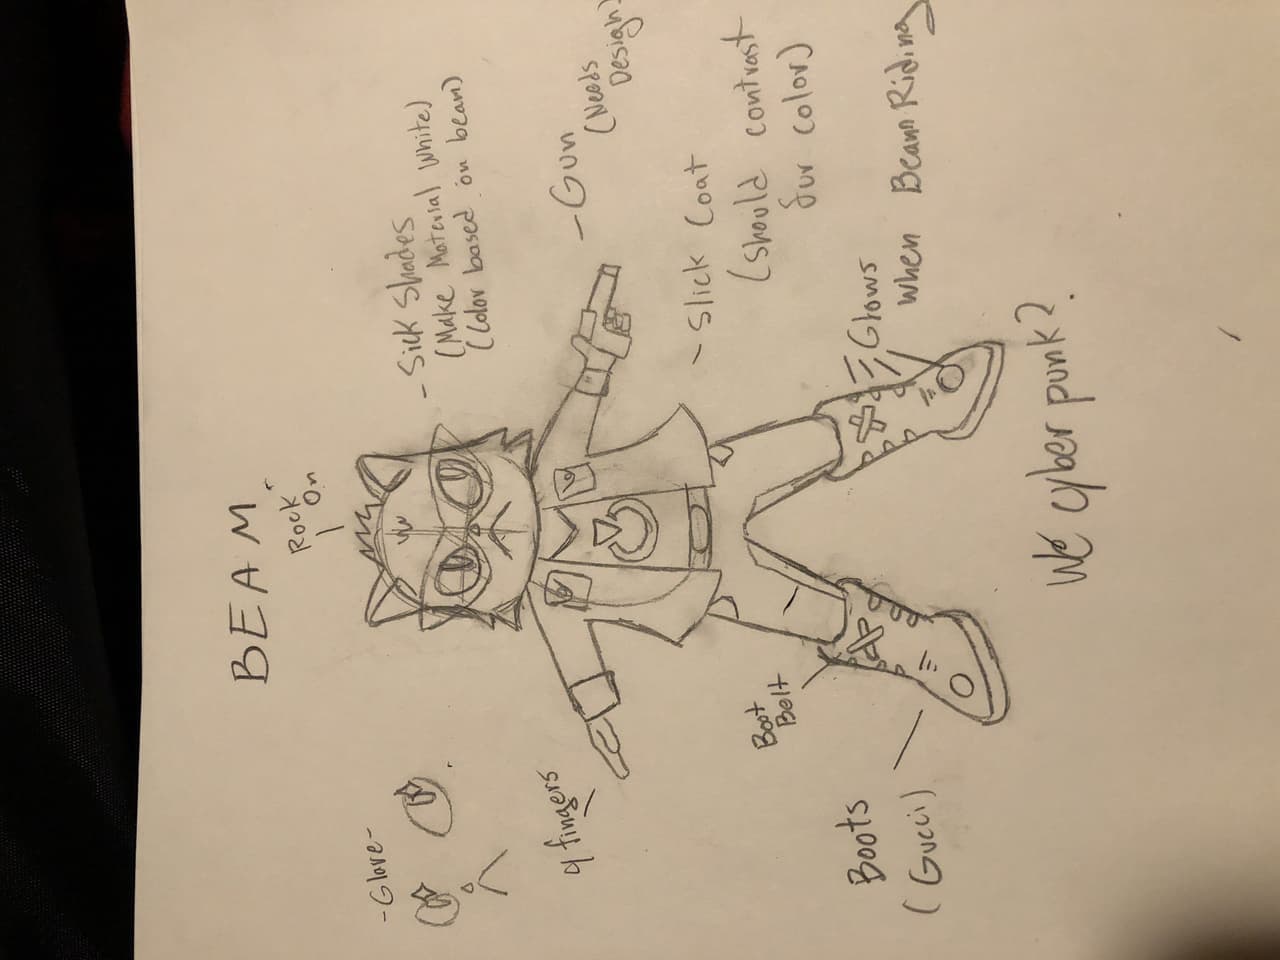 BEAM
Rock
On
- Sick Shades
(Make Material White)
(Color based on beam)
-Glare-
- Gun
(Needs
Design)
4 fingers
- Slick Coat
(should contrast
fur color)
Boot
Belt
Glows
when Beam Riding
Boots
(Gucci)
We cyber punk?